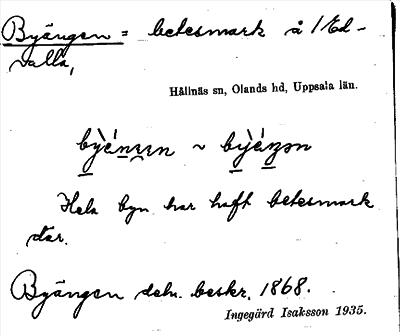 Byängen = betesmark å 1 Ed-
valla,
Hållnäs sn, Olands hd, Uppsala län.
Hela byn har haft betesmark
där.
Byängen dehn. beskr. 1868.
Ingegärd Isaksson 1935.